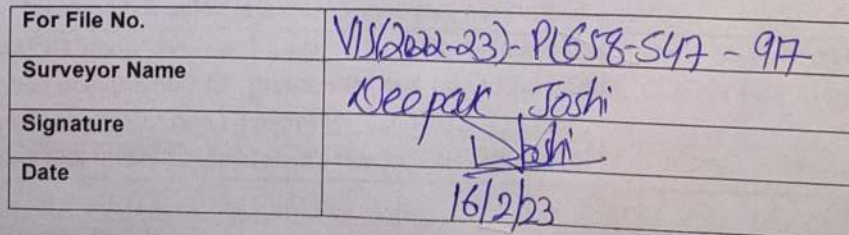 For File No. VIS(2022-23)-PL658-547-917
Surveyor Name Deepak Joshi
Signature Joshi
Date 16/2/23